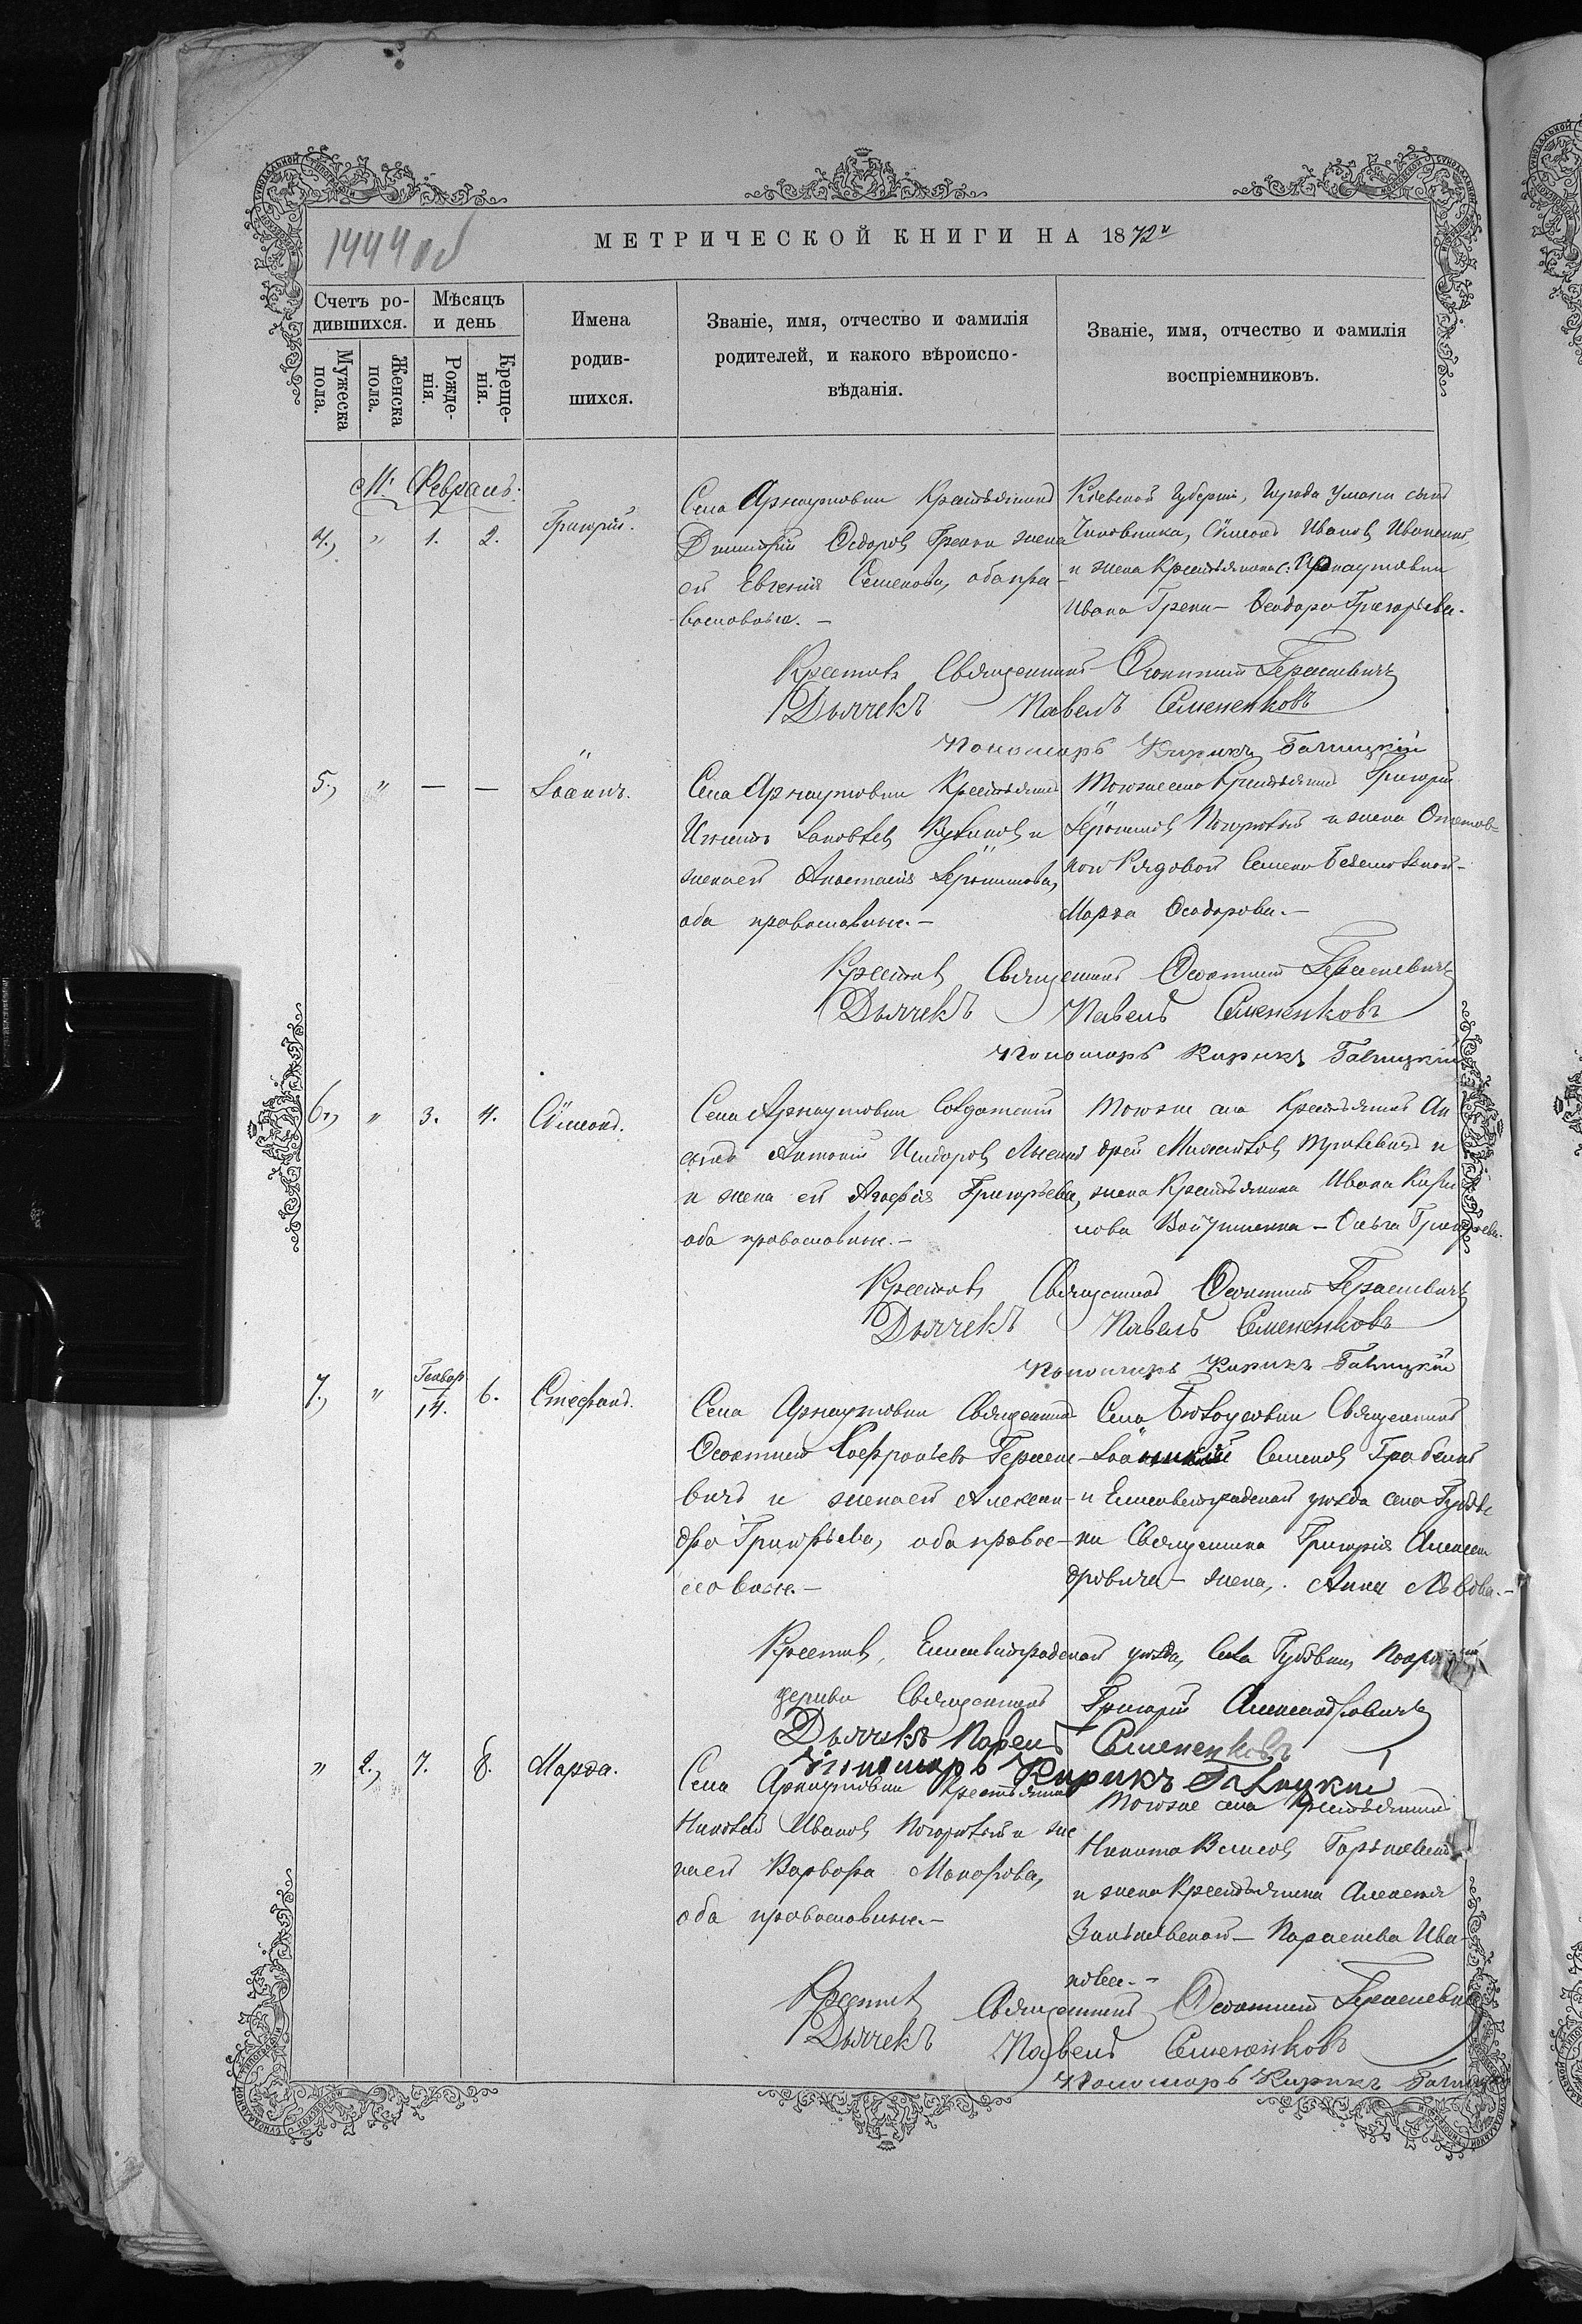 1444 об
МЕТРИЧЕСКОЙ КНИГИ НА 1872й
Счетъ ро-
дившихся.
Мѣсяцъ
и день
Имена
родив-
шихся.
Званіе, имя, отчество и фамилія
родителей, и какого вѣроиспо-
вѣданія.
Званіе, имя, отчество и фамилія
воспріемниковъ.
Мужеска
пола.
Женска
пола.
Рожде-
нія.
Креще-
нія.
М. Февраль.
4., " 1. 2. Григорій.
Села Арнаутовки Крестьянинъ
Димитрій Ѳедоровъ Грекъ и жена
его Евгенія Семенова, оба пра-
вославные.-
Кіевской Губерніи, Города Умани сынъ
Чиновника, Сѵмеонъ Ивановъ
и жена Крестьянина с. Арнаутовки
Ивана Грека - Ѳеодора Григорьева.
Крестилъ Священникъ Ѳеоктистъ Герасевичъ
Дьячекъ Павелъ Семененковъ
Пономарь Кирикъ Галицкій
5., " — — Іоаннъ.
Села Арнаутовки Крестьянинъ
Іаковлевъ и
жена его Анастасія
оба православные.-
Тогоже села Крестьянинъ Григорій
Погорѣлый и жена Отстав-
ного Рядового Семена
Марѳа Ѳеодорова.-
Крестилъ Священникъ Ѳеоктистъ Герасевичъ
Дьячекъ Павелъ Семененковъ
Пономарь Кирикъ Галицкій
6., " 3. 4. Сѵмеонъ.
Села Арнаутовки Солдатскій
сынъ Антоній Исидоровъ
и жена его Агафія Григорьева,
оба православные.-
Тогоже села Крестьянинъ Ан
дрей и
жена Крестьянина Ивана Кири
лова - Ольга Григорьева.
Крестилъ Священникъ Ѳеоктистъ Герасевичъ
Дьячекъ Павелъ Семененковъ
Пономарь Кирикъ Галицкій
7., " Генвар 14. 6. Стефанъ.
Села Арнаутовки Священникъ
Ѳеоктистъ Софроніевъ Герасе-
вичъ и жена его Алексан-
дра Григорьева, оба право-
славные.-
Села Священникъ
Семеновъ
и Елисаветградскаго уѣзда села Губов
ки Священника Григорія Алексан
дровича - жена, Анна Львова.-
Крестилъ, Елисаветградскаго уѣзда, Села Губовки,
церкви Священникъ Григорій Александровичъ
Дьячекъ Павелъ Семененковъ
Пономарь Кирикъ Галицкій
" 2., 7. 8. Марѳа.
Села Арнаутовки Крестьянинъ
Николай Ивановъ Погорѣлый и же
на его Варвара Макарова,
оба православные.-
Тогоже села Крестьянинъ
Никита Власовъ
и жена Крестьянина Алексѣя
- Параскева Ива-
нова.-
Крестилъ Священникъ Ѳеоктистъ Герасевичъ
Дьячекъ Павелъ Семененковъ
Пономарь Кирикъ